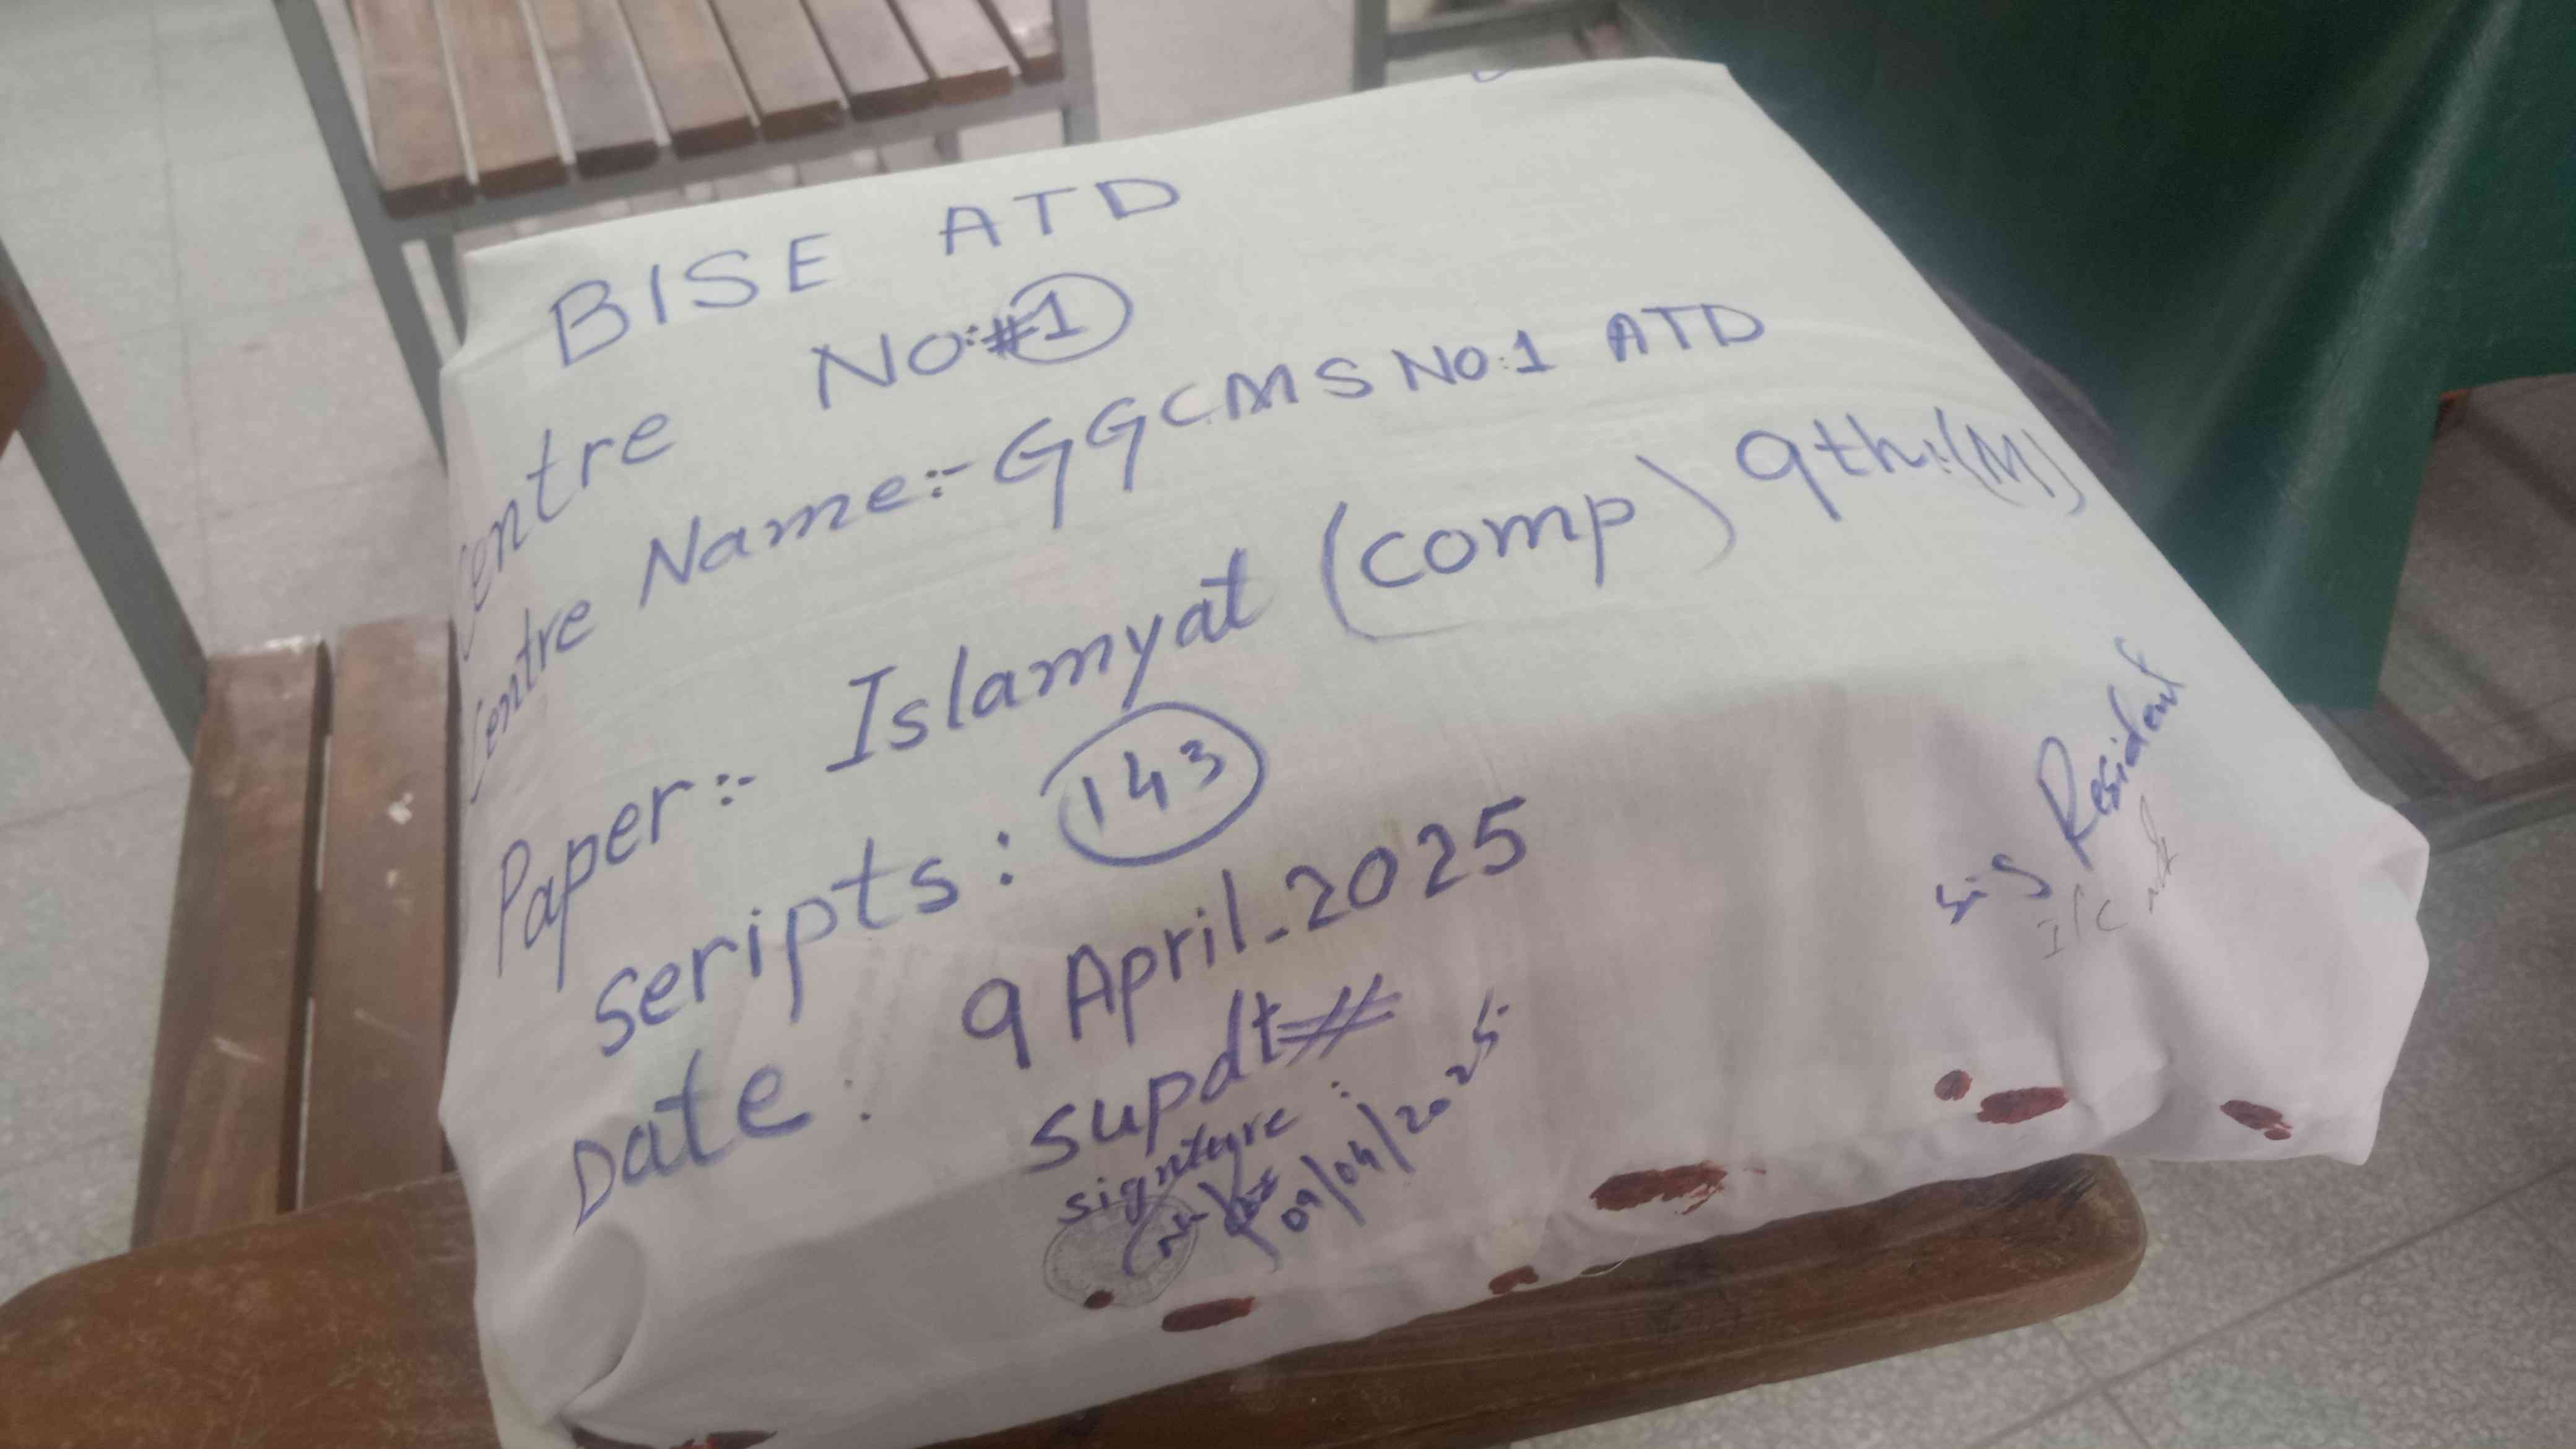 BISE ATD
Centre No:#1
Centre Name:- GGCMS No:1 ATD
Paper:- Islamyat (comp) 9th:(M)
scripts: 143
Date: 9 April-2025
supdt
signteure:
09/04/2025
Sig Resident